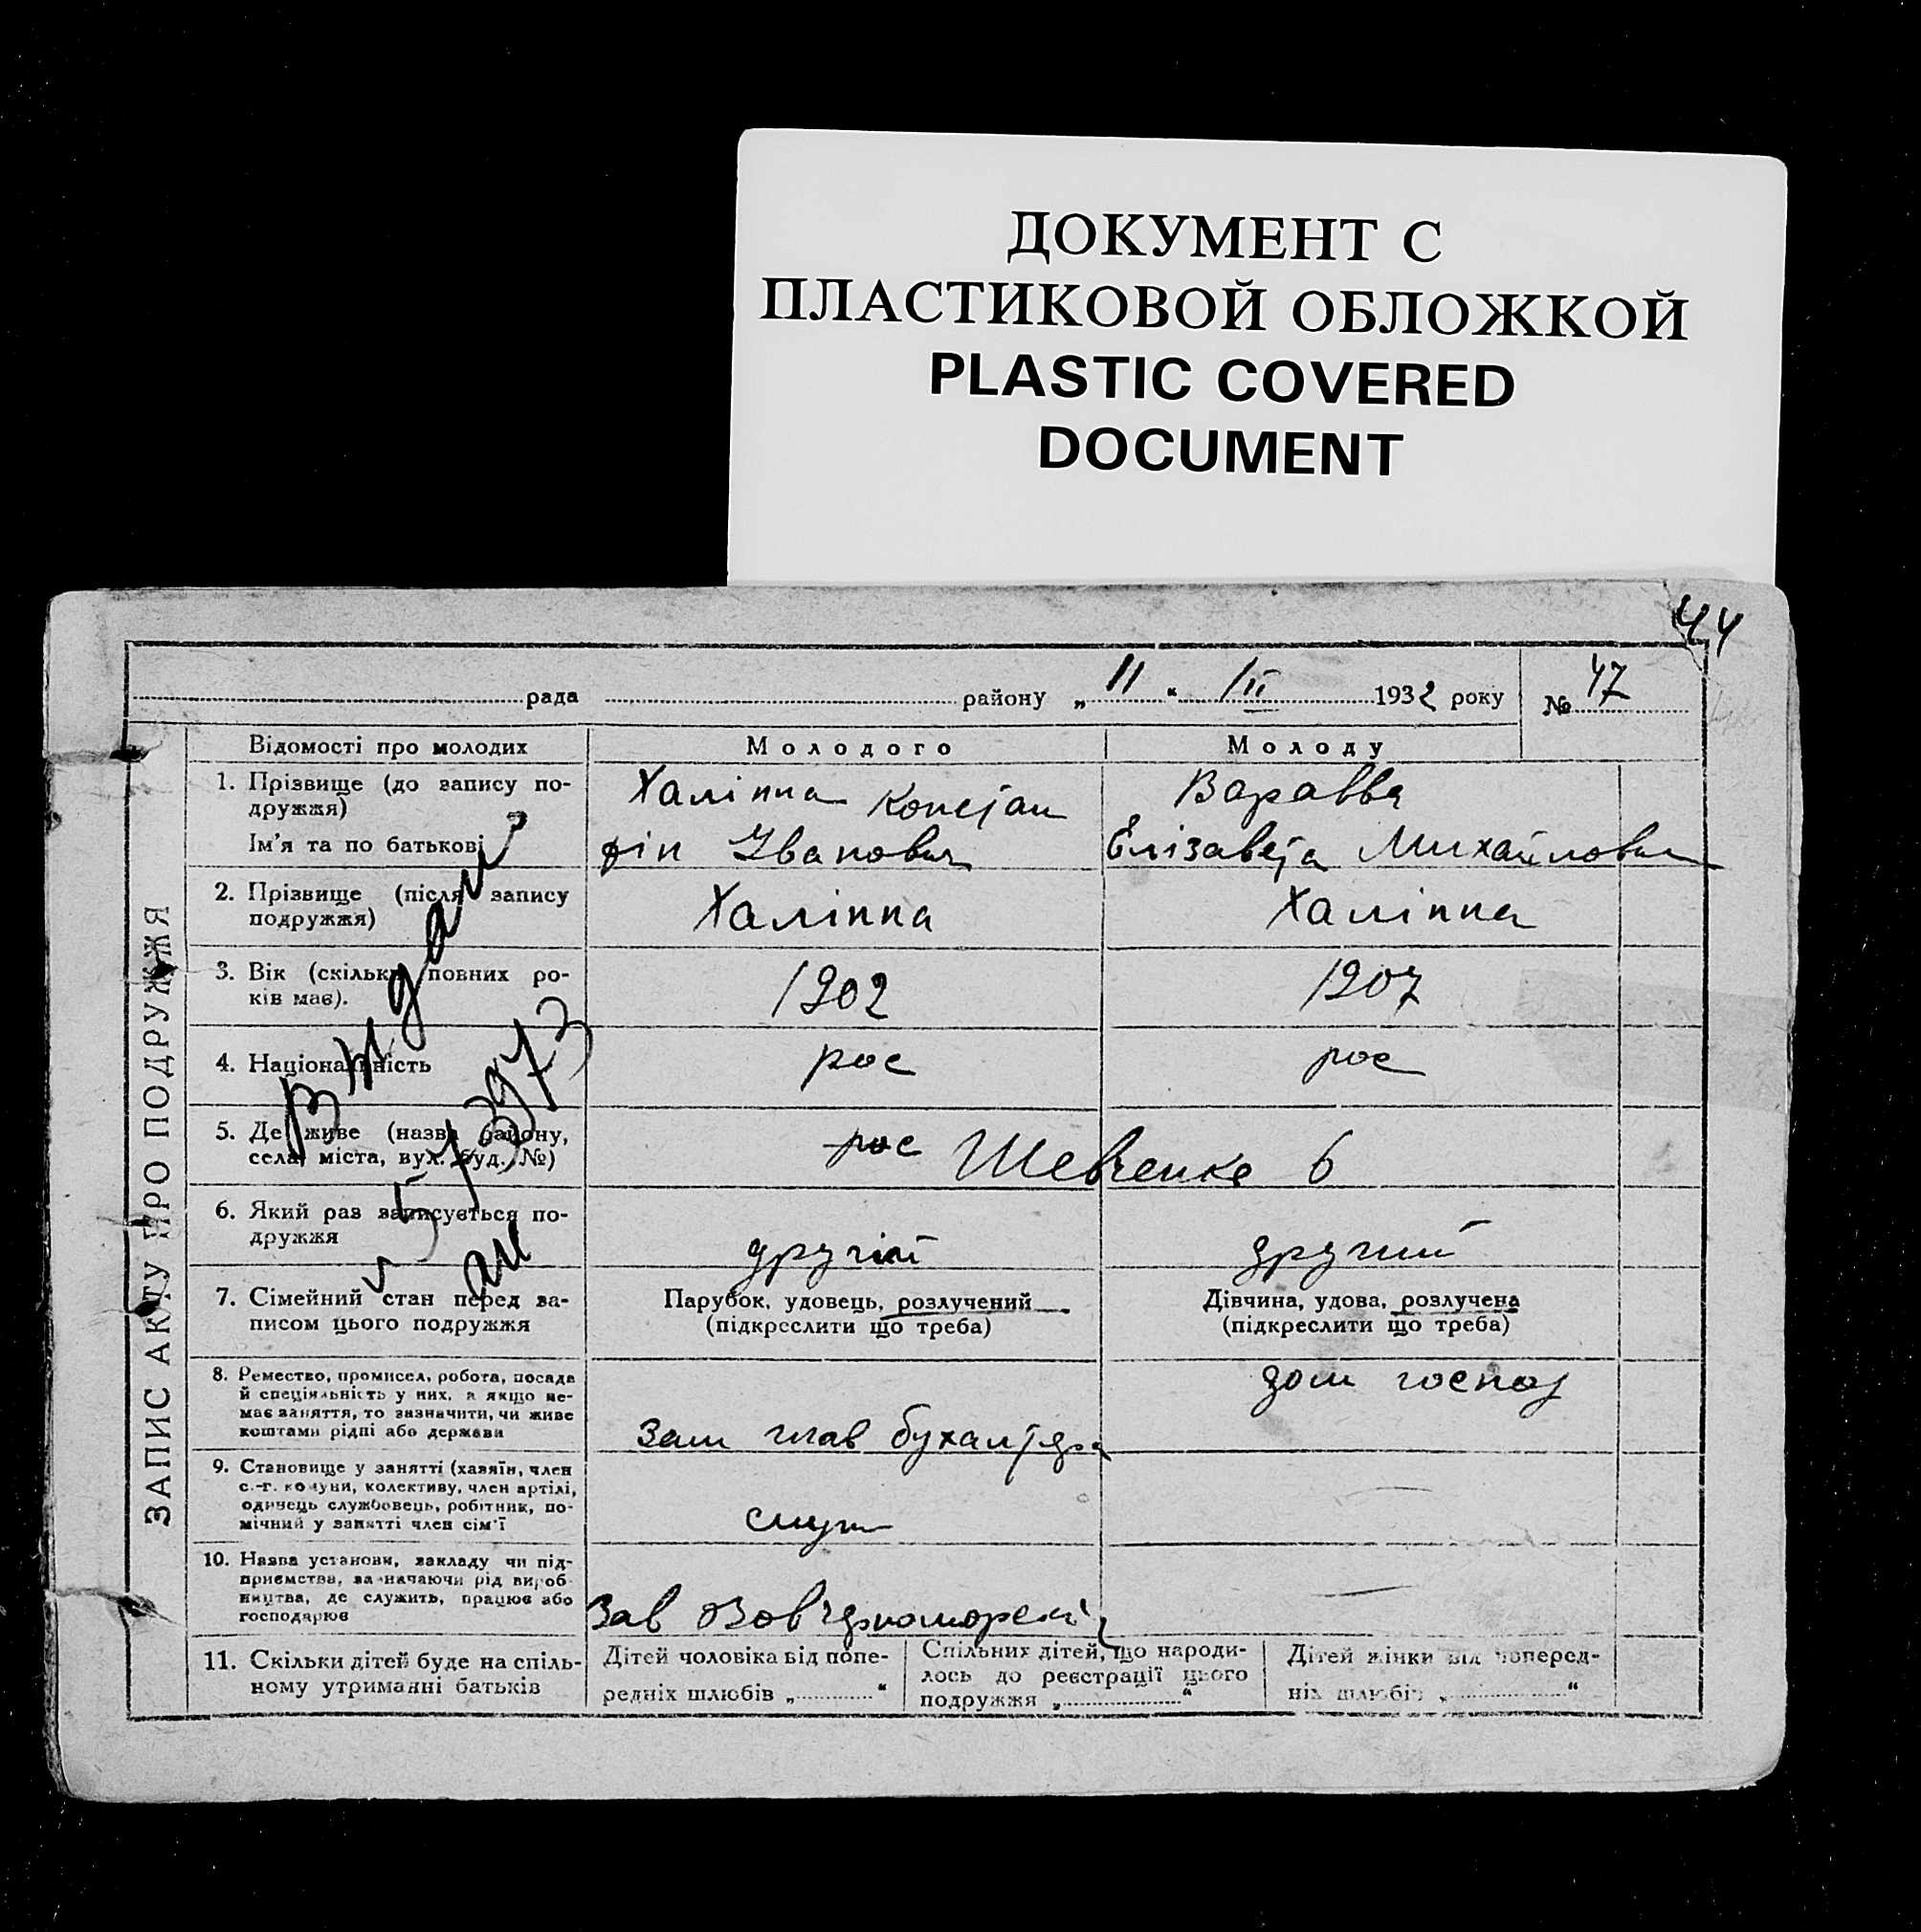 ДОКУМЕНТ С
ПЛАСТИКОВОЙ ОБЛОЖКОЙ
PLASTIC COVERED
DOCUMENT
44
рада району „ 11 “ III 1932 року № 47
ЗАПИС АКТУ ПРО ПОДРУЖЖЯ
Відомості про молодих
Молодого
Молоду
1. Прізвище (до запису по-
дружжя)
Ім'я та по батькові
Халіппа Констан
тін Іванович
Варавва
Єлізавета Михайловна
2. Прізвище (після запису
подружжя)
Халіппа
Халіппа
3. Вік (скільки повних ро-
ків має).
1902
1907
4. Національність
рос
рос
5. Де живе (назва району,
села, міста, вул. буд. №)
рос Шевченка 6
6. Який раз записується по-
дружжя
другій
другий
7. Сімейний стан перед за-
писом цього подружжя
Парубок, удовець, розлучений
(підкреслити що треба)
Дівчина, удова, розлучена
(підкреслити що треба)
8. Ремество, промисел, робота, посада
й спеціяльність у них, а якщо не-
має заняття, то зазначити, чи живе
коштами рідні або держави
Зам глав бухалтера
дом господ
9. Становище у занятті (хазяїн, член
с.-г. комуни, колективу, член артілі,
одинець службовець, робітник, по-
мічний у занятті член сім'ї
служ
10. Назва установи, закладу чи під-
приємства, зазначаючи рід вироб-
ництва, де служить, працює або
господарює
Зав
11. Скільки дітей буде на спіль-
ному утриманні батьків
Дітей чоловіка від попе-
редніх шлюбів „ “
Спільних дітей, що народи-
лось до реєстрації цього
подружжя „ “
Дітей жінки від поперед-
ніх шлюбів „ “